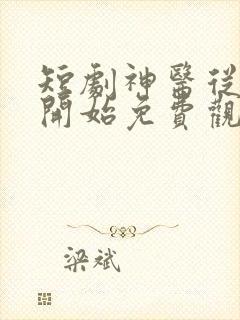 短劇神醫從
開始免費觀
梁斌